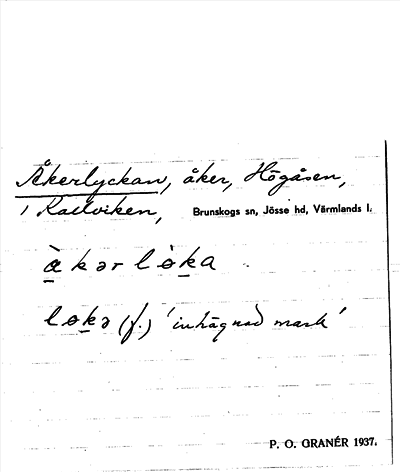 Åkerlyckan, åker, Högåsen,
i Kallviken, Brunskogs sn, Jösse hd, Värmlands l.
àkər lòka
lokə (f.) 'inhägnad mark'
P. O. GRANÉR 1937.